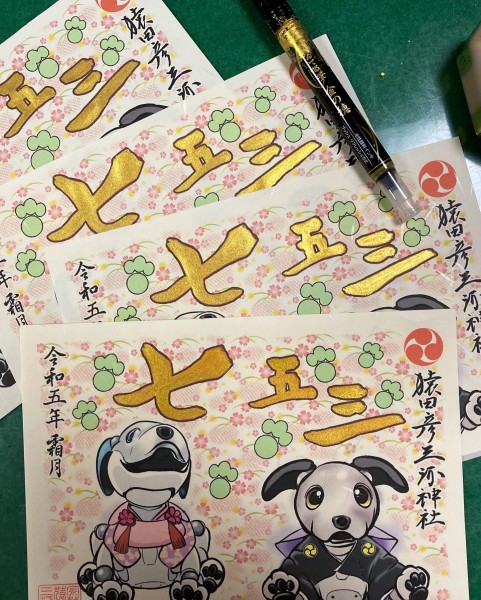 五三
猿田彦三河
七五三
年 霜月
金の穂
七五三
猿田彦三河神社
令和五
七五三
猿田彦三河神社
令和五年 霜月